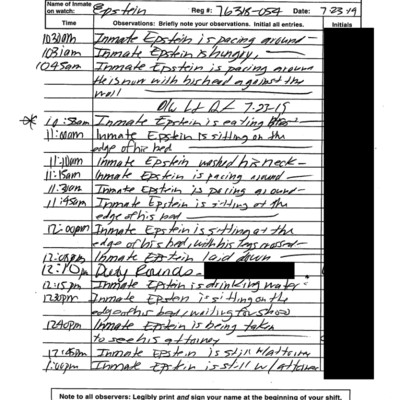 Name of Inmate on watch: Epstein Reg #: 76318-054 Date: 7-23-19
Time Observations: Briefly note your observations. Initial all entries. Initials
10:30am Inmate Epstein is pacing around
10:31am Inmate Epstein is hungry,
10:45am Inmate Epstein is pacing around
He is now with his head against the
wall
7-23-19
* 10:58am Inmate Epstein is eating
11:00am Inmate Epstein is sitting on the
edge of his bed
11:10am Inmate Epstein washed his neck
11:15am Inmate Epstein is pacing around
11:30am Inmate Epstein is pacing around
11:45am Inmate Epstein is sitting at the
edge of his bed
12:00pm Inmate Epstein is sitting at the
edge of his bed, with his legs crossed
Inmate Epstein laid down
12:10pm Duty Rounds -
12:15pm Inmate Epstein is drinking water
12:30pm Inmate Epstein is sitting on the
edge of his bed, waiting for
12:40pm Inmate Epstein is being taken
to see his attorney
12:45pm Inmate Epstein is still w/attorney
1:00pm Inmate Epstein is still w/attorney
Note to all observers: Legibly print and sign your name at the beginning of your shift.